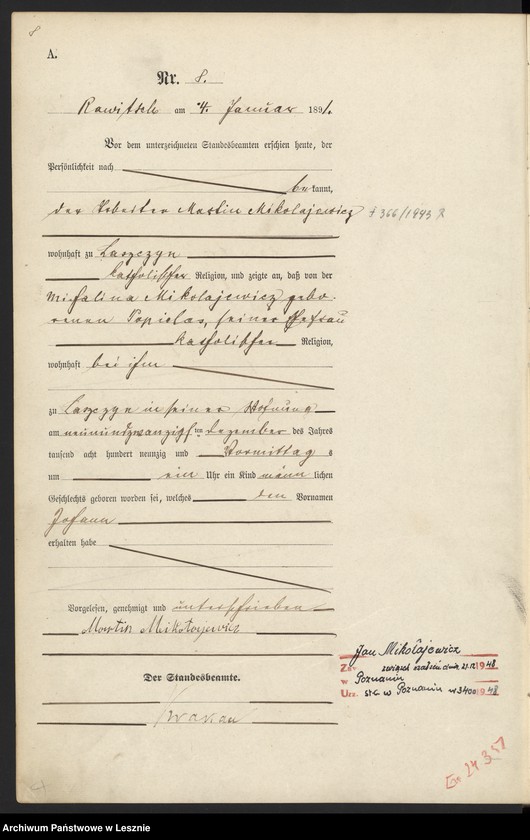 8
A.
Nr. 8.
Rawitsch am 4. Januar 1891.
Vor dem unterzeichneten Standesbeamten erschien heute, der
Persönlichkeit nach
bekannt,
der Arbeiter Martin Mikolajewicz † 366/1943 R
wohnhaft zu Laszczyn
katholischer Religion, und zeigte an, daß von der
Michalina Mikolajewicz gebo-
renen Popielas, seiner Ehefrau
katholischer Religion,
wohnhaft bei ihm
zu Laszczyn in seiner Wohnung
am neunundzwanzigsten Dezember des Jahres
tausend acht hundert neunzig und Vormittag s
um ein Uhr ein Kind männlichen
Geschlechts geboren worden sei, welches den Vornamen
Johann
erhalten habe
Vorgelesen, genehmigt und unterschrieben
Martin Mikołajewicz
Der Standesbeamte.
Jan Mikołajewicz
Zw. związek małżeń. dnia 21.12.1948.
w Poznaniu
Urz. st. c. w Poznaniu nr 3400 1948
24.3.51
Archiwum Państwowe w Lesznie